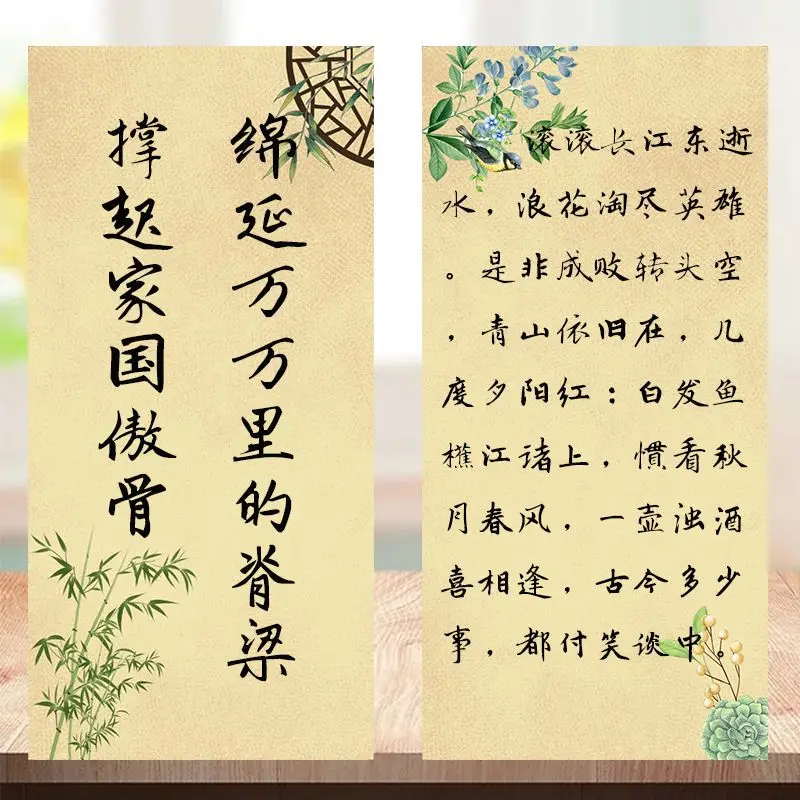 绵延万万里的脊梁
撑起家国傲骨
滚滚长江东逝
水，浪花淘尽英雄
。是非成败转头空
，青山依旧在，几
度夕阳红：白发鱼
樵江诸上，惯看秋
月春风，一壶浊酒
喜相逢，古今多少
事，都付笑谈中。